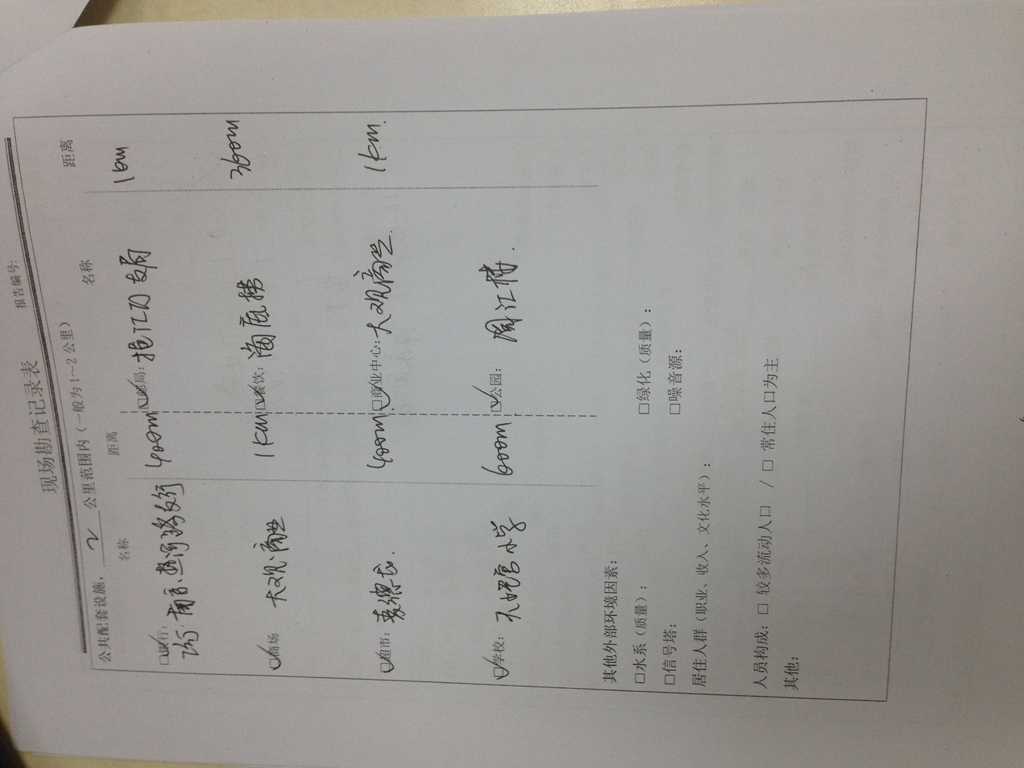 现场勘查记录表
报告编号:
公共配套设施, 2 公里范围内(一般为1～2公里)
名称 距离 名称 距离
☑银行: 400m ☑邮局: 1km
☑商场 大观·商世 1km ☑餐饮: 海底捞 360m
☑超市: 麦德龙. 400m ☑商业中心: 大观商世. 1km.
☑学校: 天妃宫小学 600m ☑公园: 阅江楼.
其他外部环境因素:
□水系(质量): □绿化(质量):
□信号塔: □噪音源:
居住人群(职业、收入、文化水平):
人员构成: □ 较多流动人口 / □ 常住人口为主
其他: